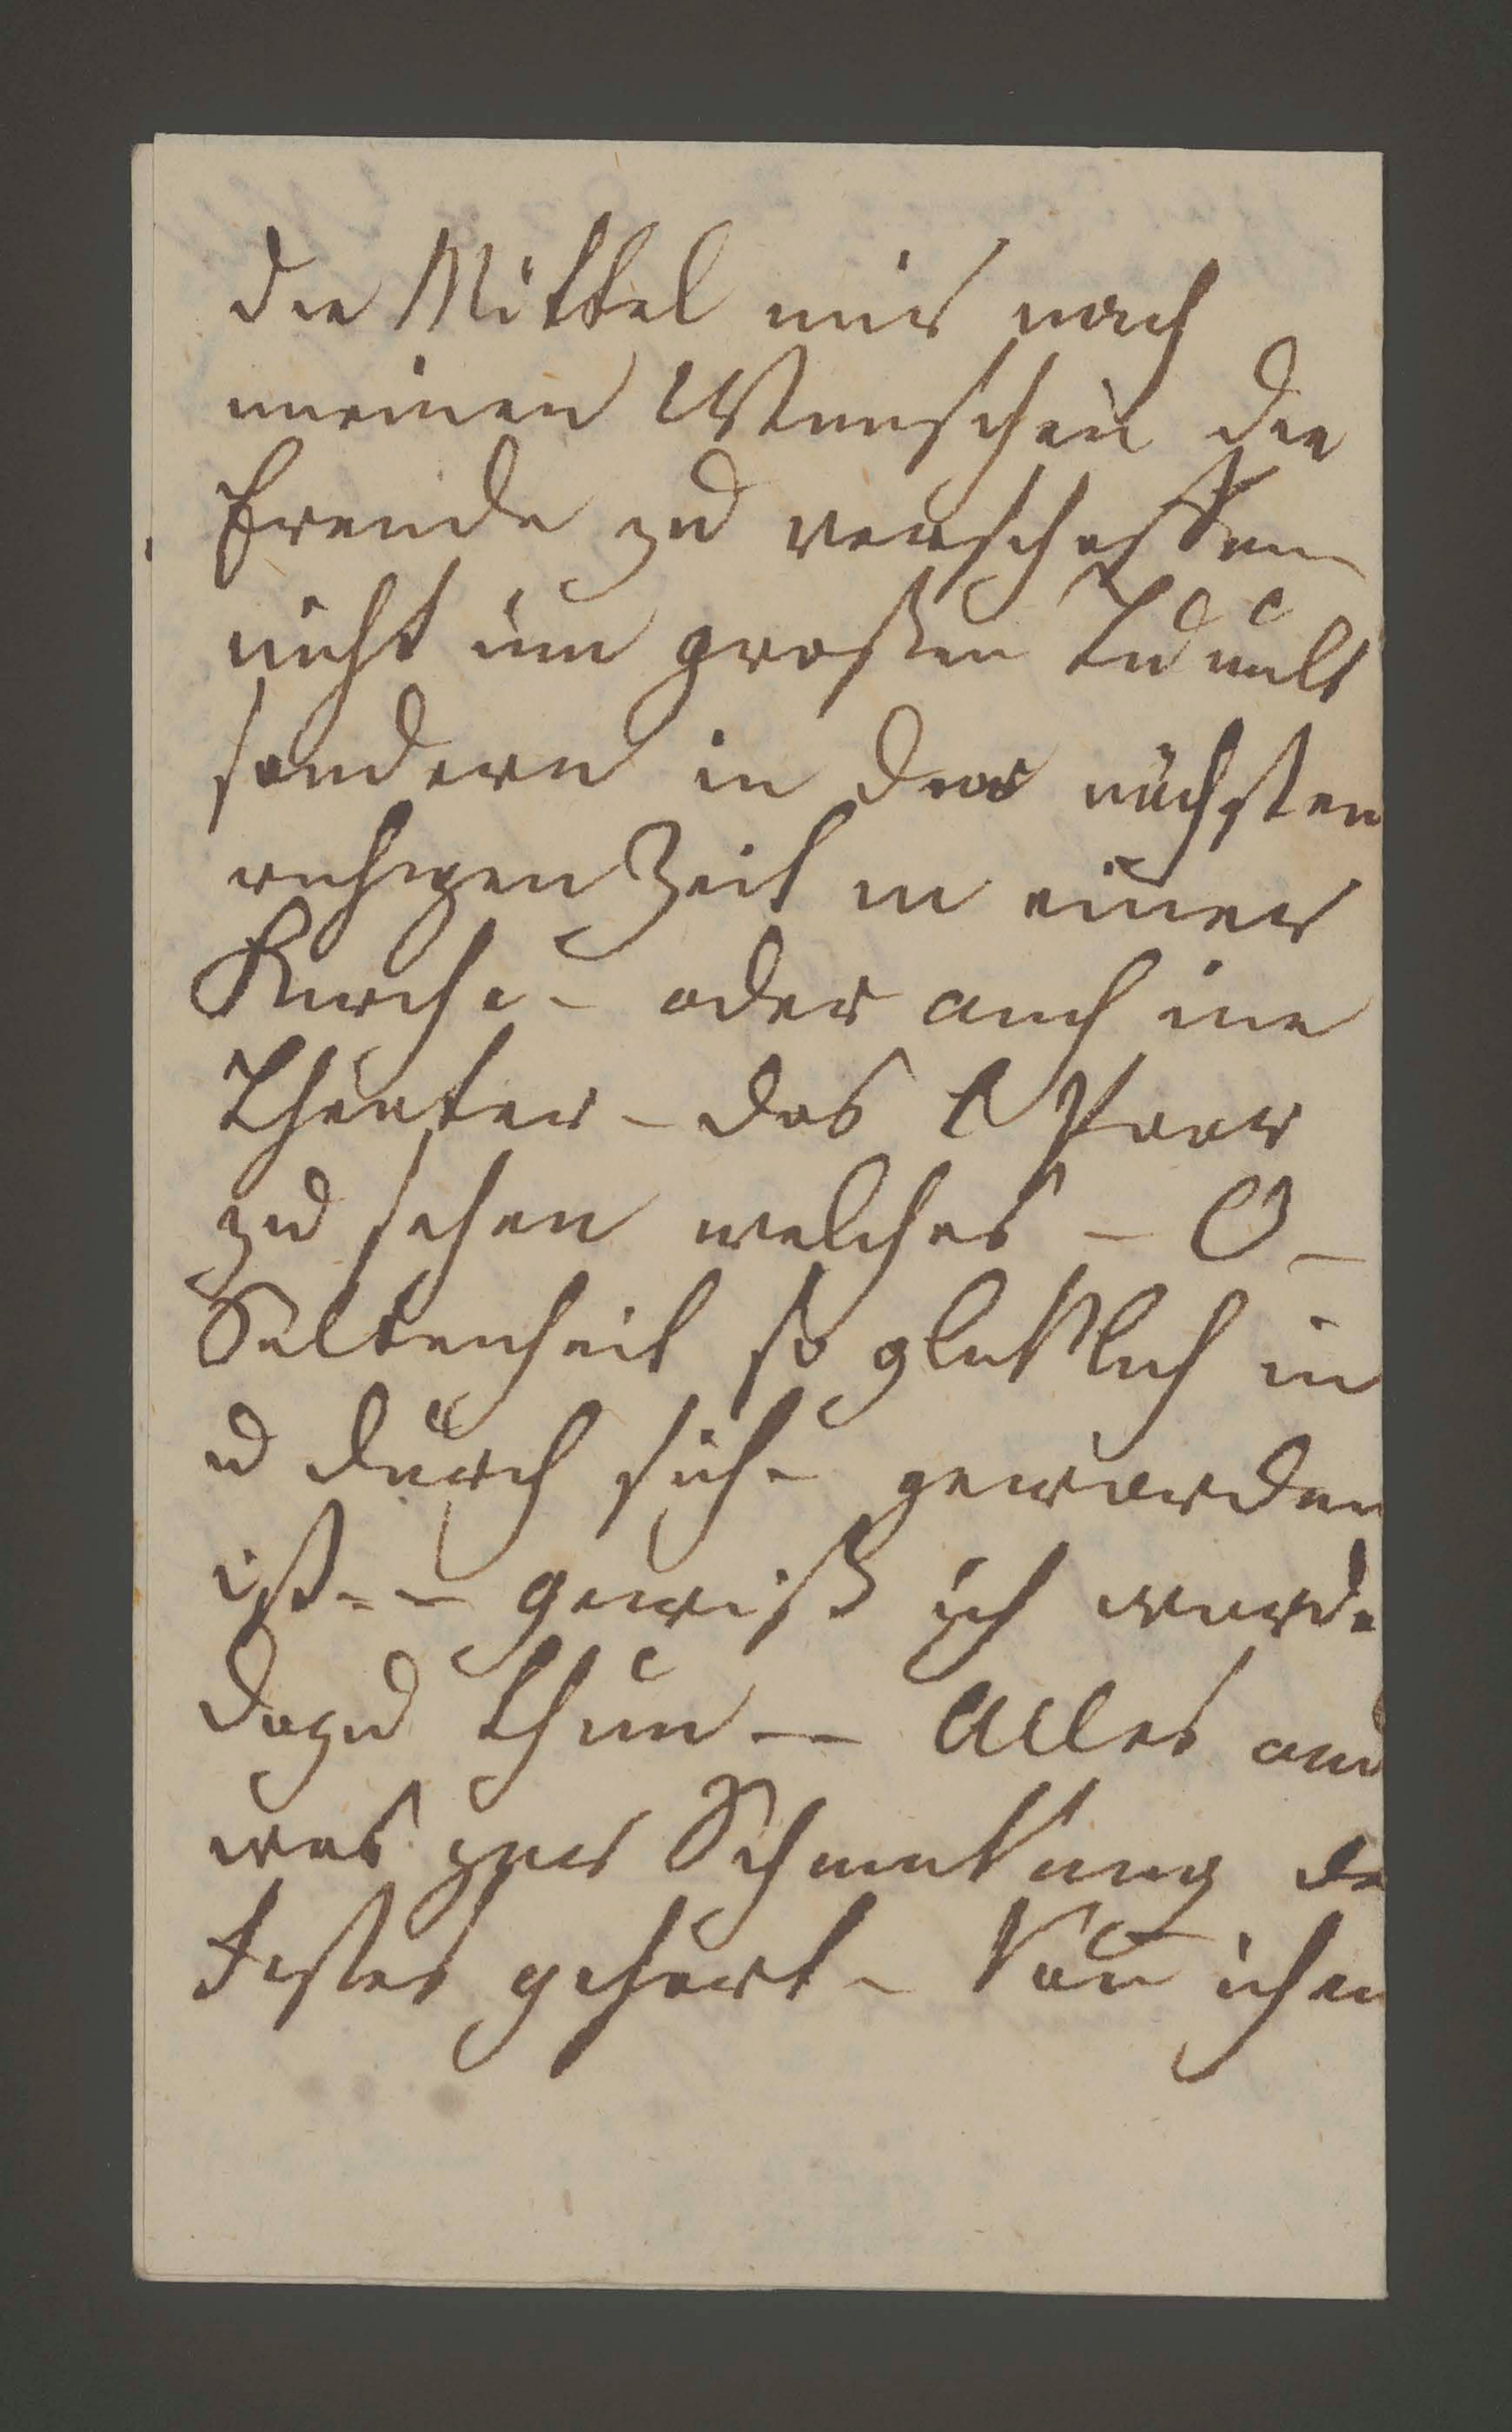 die Mittel mir nach
meinen Wunschen die
Freude zu verschaffen
nicht im großen Tumult
sondern in der nächsten
ruhigen Zeit in einer
Kirche - oder auch im
Theater - das Paar
zu sehen welches - O -
Seltenheit so glucklich in
u durch sich - geworden
ist - - gewiß ich werde
dazu thun - Alles an
was zur Schmukung de
Festes gehort - Von